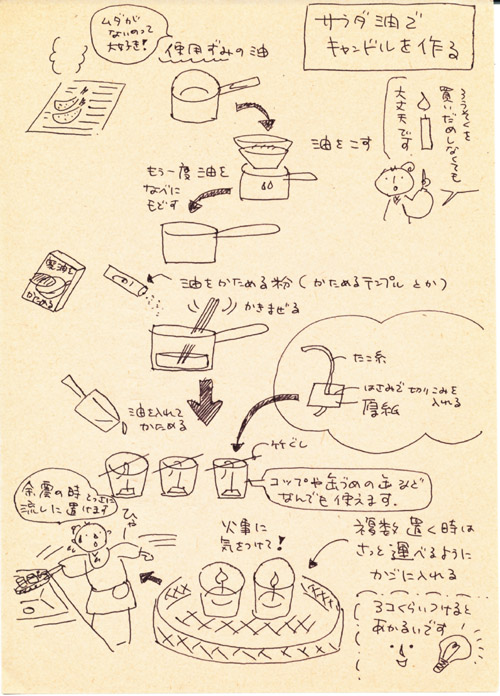 サラダ油で
キャンドルを作る
ムダが
ないのって
大好き!
使用ずみの油
ろうそくを
買いだめしなくても
大丈夫です
油をこす
もう一度油を
なべに
もどす
廃油を
かためる
油をかためる粉(かためるテンプルとか)
かきまぜる
たこ糸
はさみで切りこみを
入れる
厚紙
油を入れて
かためる
竹ぐし
コップや缶づめの缶など
なんでも使えます.
余震の時とっさに
流しに置けます
ひゃ
火事に
気をつけて!
複数置く時は
さっと運べるように
カゴに入れる
3コくらいつけると
あかるいです